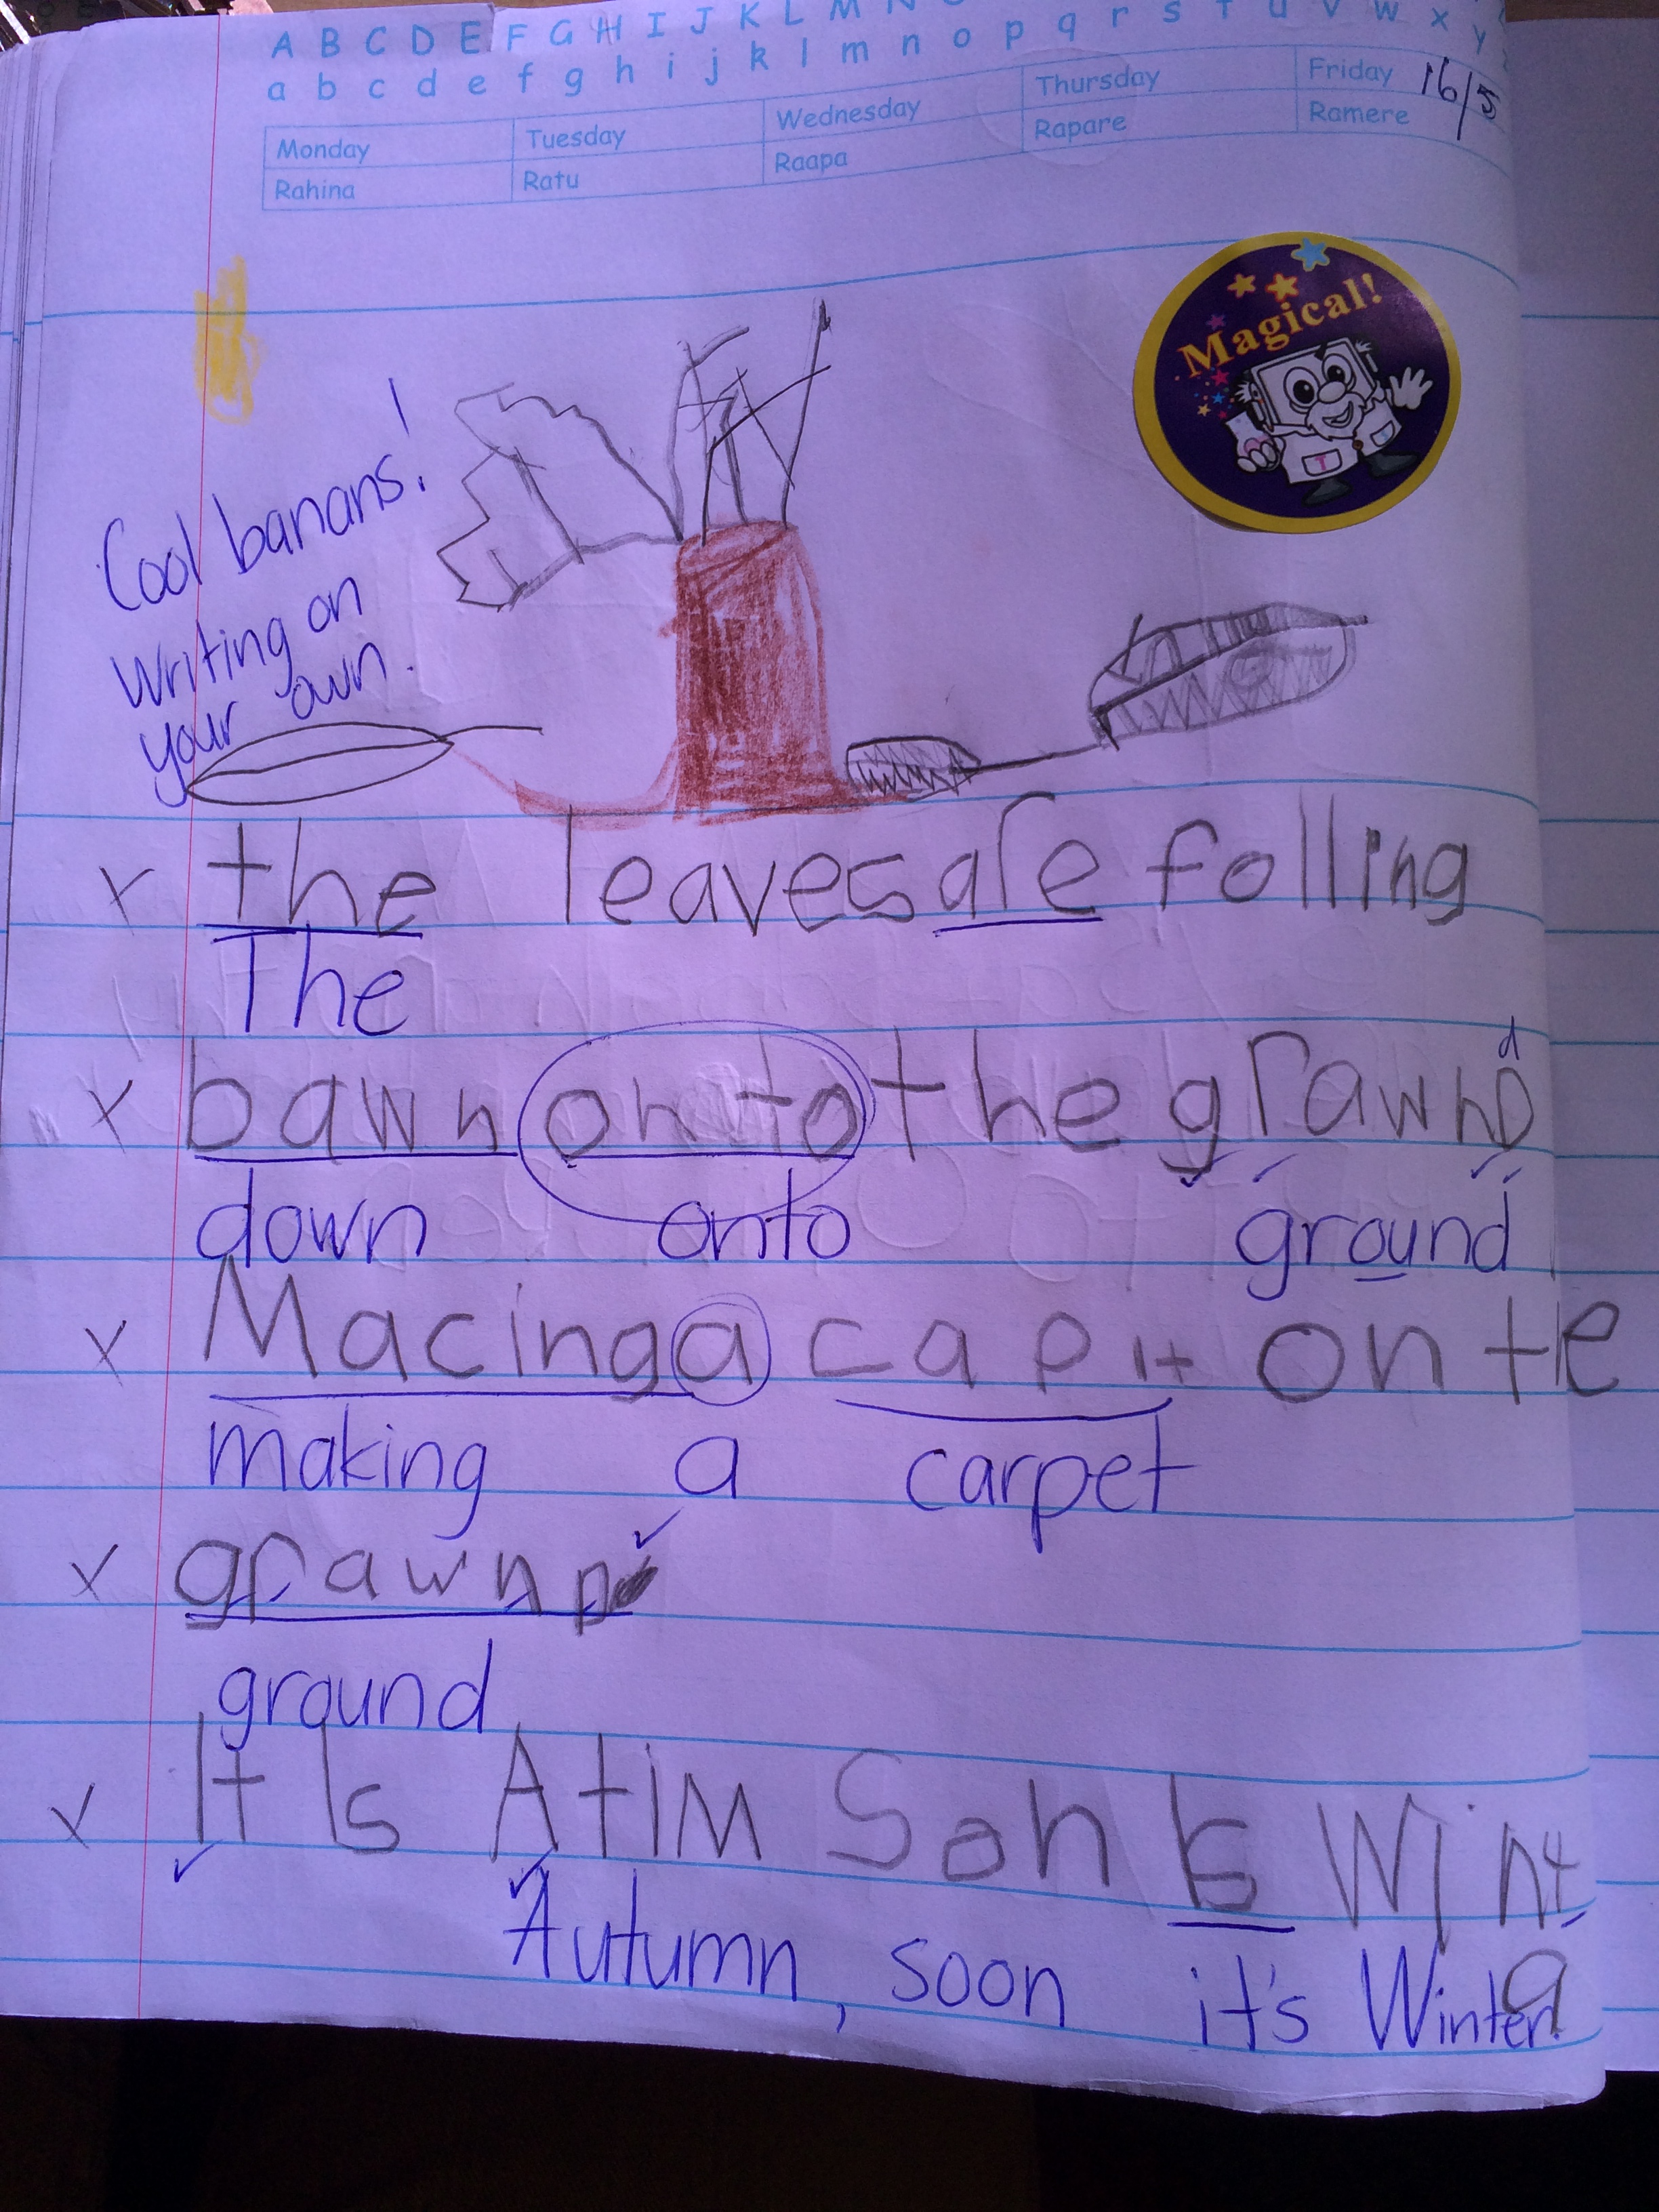 A B C D E F G H I J K L M N
a b c d e f g h i j k l m n o p q r s t u v w x y
Monday Tuesday Wednesday Thursday Friday 16/5
Rahina Ratu Raapa Rapare Ramere
Magical!
T
Cool banans!
Writing on
your own.
the leaves are folling
The
d
bawn on to the grawnd
down onto ground
Macing a capit on te
making a carpet
grawnd
ground
It Is AtiM Son Is Wint
Autumn, soon it's Winter.
a